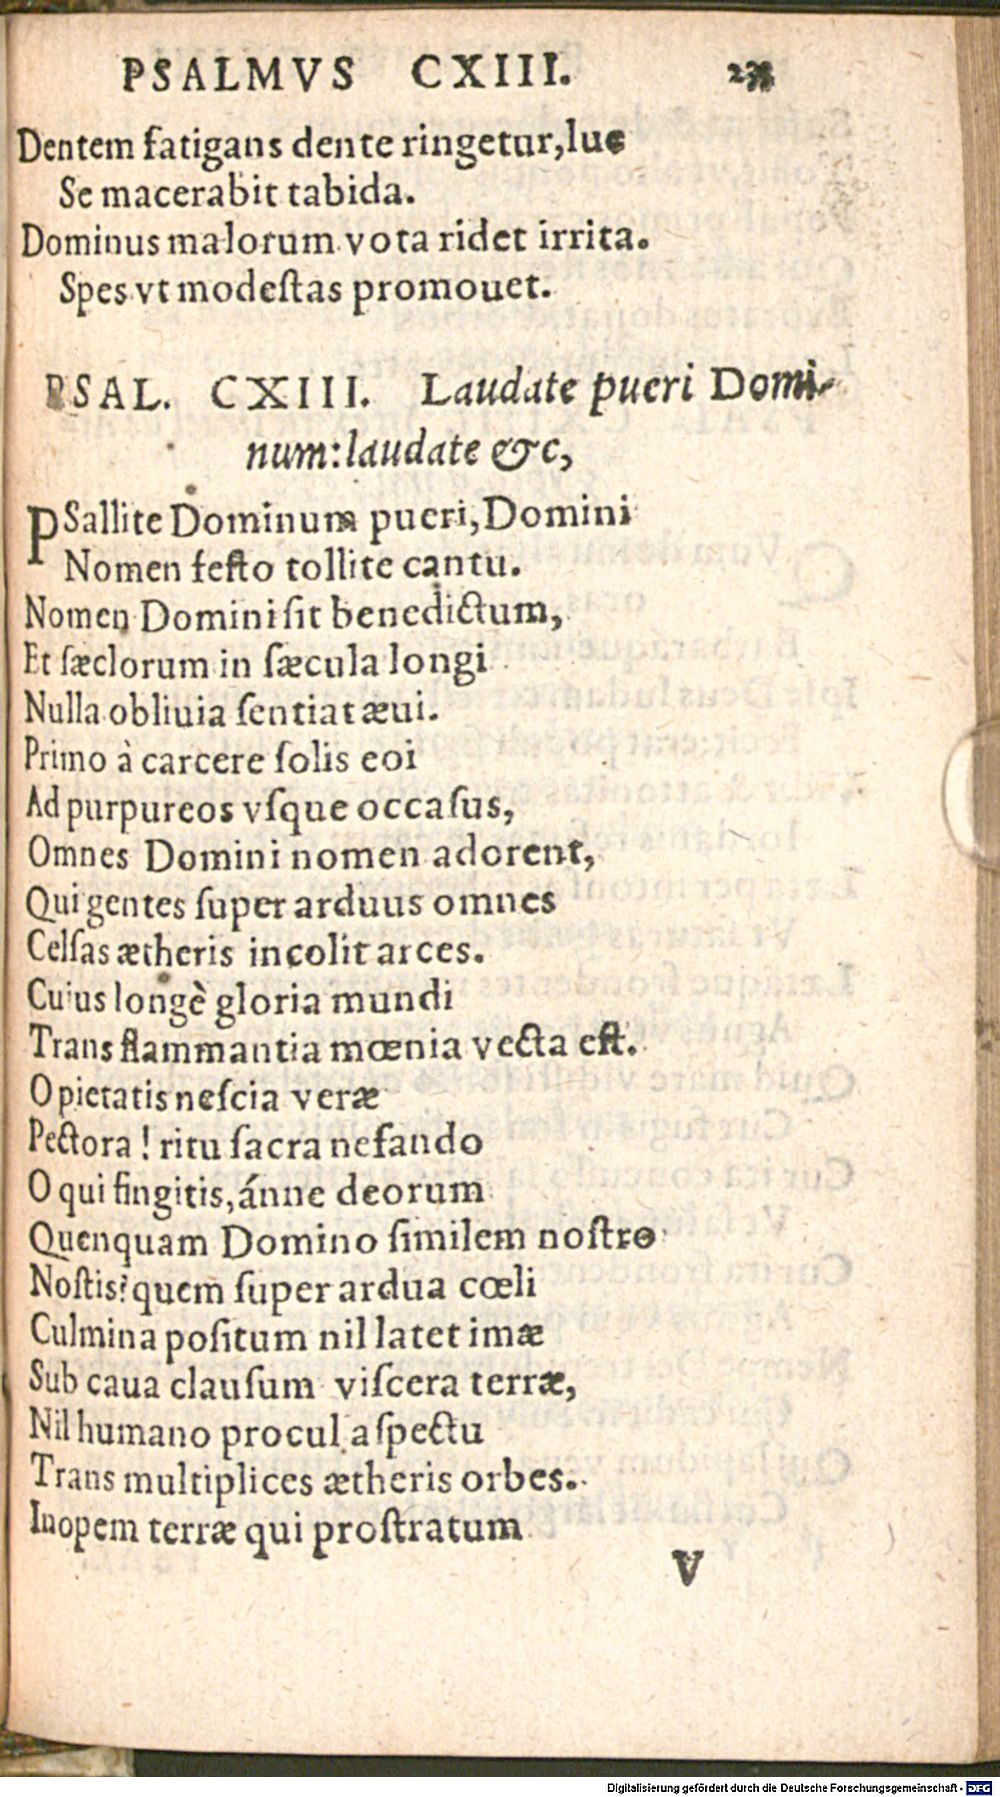 PSALMVS CXIII.
Dentem fatigans dente ringetur, lue
Se macerabit tabida.
Dominus malorum vota ridet irrita.
Spes vt modeſtas promouet.
PSAL. CXIII. Laudate pueri Domi-
num: laudate &c,
PSallite Dominum pueri, Domini
Nomen feſto tollite cantu.
Nomen Domini ſit benedictum,
Et ſæclorum in ſæcula longi
Nulla obliuia ſentiat æui.
Primo à carcere ſolis eoi
Ad purpureos vſque occaſus,
Omnes Domini nomen adorent,
Qui gentes ſuper arduus omnes
Celſas ætheris incolit arces.
Cuius longè gloria mundi
Trans flammantia mœnia vecta eſt.
O pietatis neſcia veræ
Pectora! ritu ſacra nefando
O qui fingitis, ánne deorum
Quenquam Domino ſimilem noſtro
Noſtis? quem ſuper ardua cœli
Culmina poſitum nil latet imæ
Sub caua clauſum viſcera terræ,
Nil humano procul aſpectu
Trans multiplices ætheris orbes.
Inopem terræ qui proſtratum
V
Digitalisierung gefördert durch die Deutsche Forschungsgemeinschaft - DFG